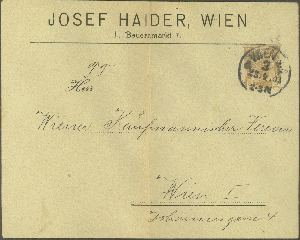 JOSEF HAIDER, WIEN
1. Bauernmarkt 1.
Wiener Kaufmännischer Verein
Wien I.
Johannesgasse 4